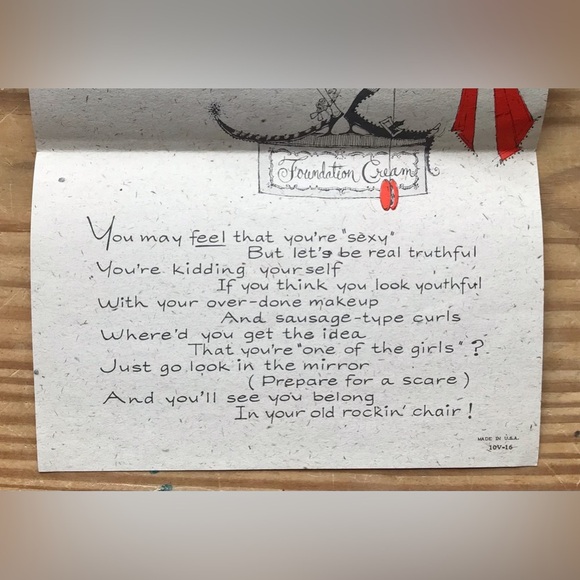 Foundation Cream
You may feel that you're "sexy"
But let's be real truthful
You're kidding yourself
If you think you look youthful
With your over-done makeup
And sausage-type curls
Where'd you get the idea
That you're "one of the girls"?
Just go look in the mirror
(Prepare for a scare)
And you'll see you belong
In your old rockin' chair!
MADE IN U.S.A.
10V-16